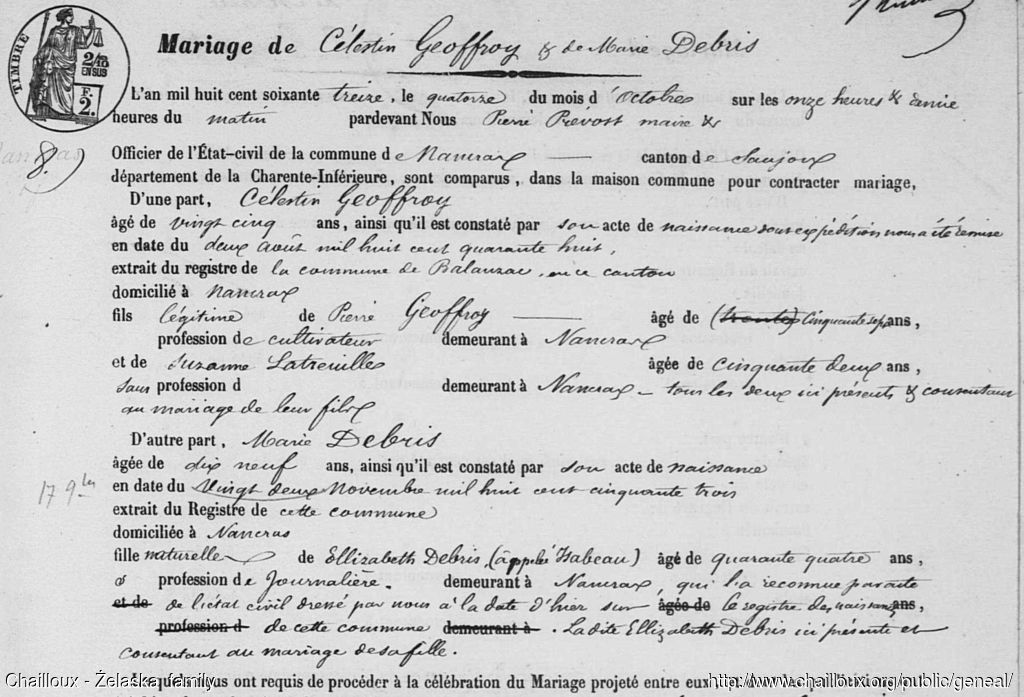 TIMBRE
2/10
EN SUS
F.
2.
Mariage de Célestin Geoffroy & de Marie Debris
L'an mil huit cent soixante treize, le quatorze du mois d'Octobre sur les onze heures & demie
heures du matin pardevant Nous Pierre Prévost maire &
8.
Officier de l'État-civil de la commune de Nancras canton de Saujon
département de la Charente-Inférieure, sont comparus, dans la maison commune pour contracter mariage,
D'une part, Célestin Geoffroy
âgé de vingt cinq ans, ainsi qu'il est constaté par son acte de naissance dont expédition nous a été remise
en date du deux août mil huit cent quarante huit,
extrait du registre de la commune de Balanzac, en ce canton
domicilié à Nancras
fils légitime de Pierre Geoffroy âgé de (trente) cinquante sept ans,
profession de cultivateur demeurant à Nancras
et de Suzanne Latreuille âgée de cinquante deux ans,
sans profession d demeurant à Nancras - tous les deux ici présents & consentant
au mariage de leur fils
D'autre part, Marie Debris
âgée de dix neuf ans, ainsi qu'il est constaté par son acte de naissance
17 9bre
en date du Vingt deux Novembre mil huit cent cinquante trois
extrait du Registre de cette commune
domiciliée à Nancras
fille naturelle de Ellizabeth Debris, (appelée Isabeau) âgé de quarante quatre ans,
profession de Journalière. demeurant à Nancras, qui l'a reconnue par acte
et de de l'état civil dressé par nous à la date d'hier sur âgée de le registre des naissances ans,
profession d de cette commune demeurant à . La dite Ellizabeth Debris ici présente et
consentant au mariage de sa fille.
Lesquels nous ont requis de procéder à la célébration du Mariage projeté entre eux
Chailloux - Żelaska family
http://www.chailloux.org/public/geneal/